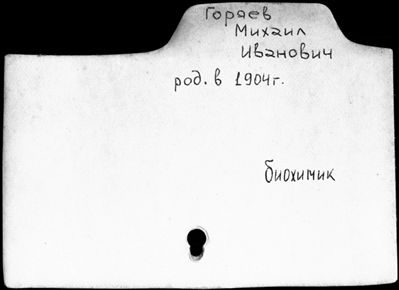 Горяев
Михаил
Иванович
род. в 1904г.
биохимик